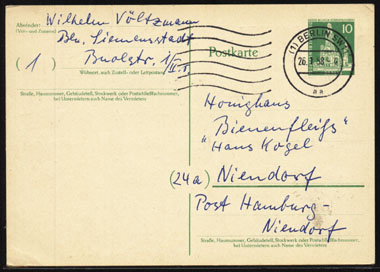 Absender:
Wilhelm Völtzmann
(Vor- und Zuname)
Bln. Siemensstadt
(1) Buolstr. 1/
II. r.
Wohnort, auch Zustell- oder Leitpostamt
Straße, Hausnummer, Gebäudeteil, Stockwerk oder Postschließfachnummer,
bei Untermietern auch Name des Vermieters
Postkarte
(1) BERLIN
26.1.58
aa
10
Honighaus
"Bienenfleiß"
"Hans Kogel
(24a) Niendorf
Post Hamburg-
Niendorf
Straße, Hausnummer, Gebäudeteil, Stockwerk oder Postschließfachnummer,
bei Untermietern auch Name des Vermieters